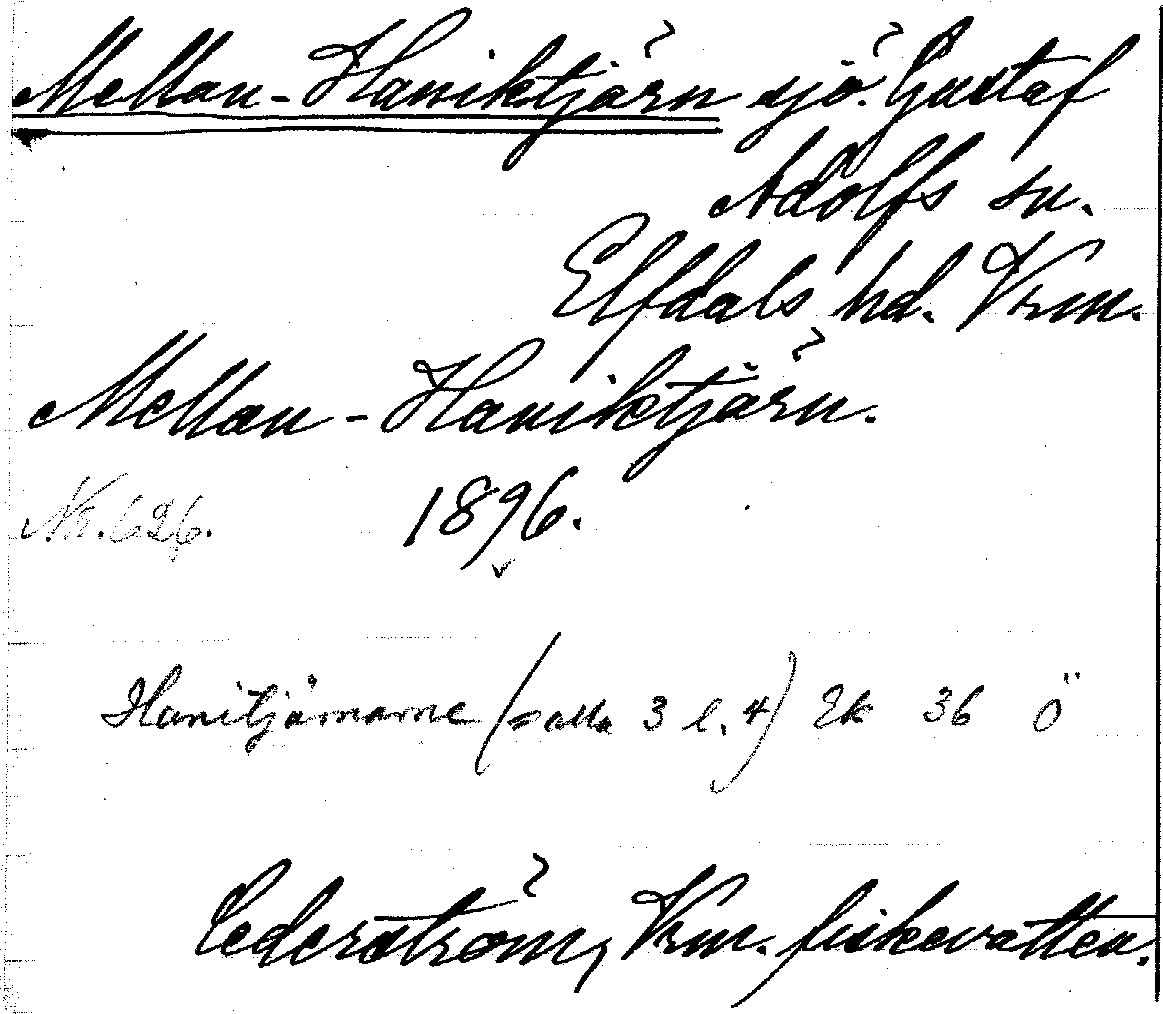 Mellan-Haniktjärn sjö. Gustaf
Adolfs sn.
Elfdals hd. Vrm.
Mellan-Haniktjärn.
Nr. 626. 1896.
Hanitjärnarne ( 3 l. 4) Ek 36 Ö
Cederström, Vrm. fiskevatten.